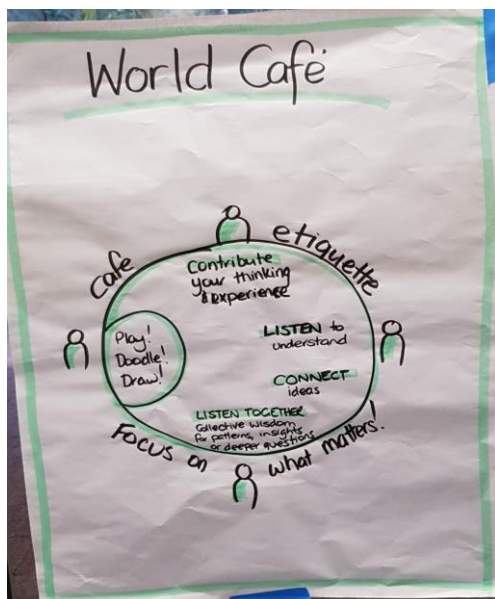 World Café
cafe etiquette
contribute
your thinking
& experience
Play!
Doodle!
Draw!
LISTEN to
understand
CONNECT
ideas
LISTEN TOGETHER
Collective wisdom
for patterns, insights
or deeper questions
Focus on what matters!